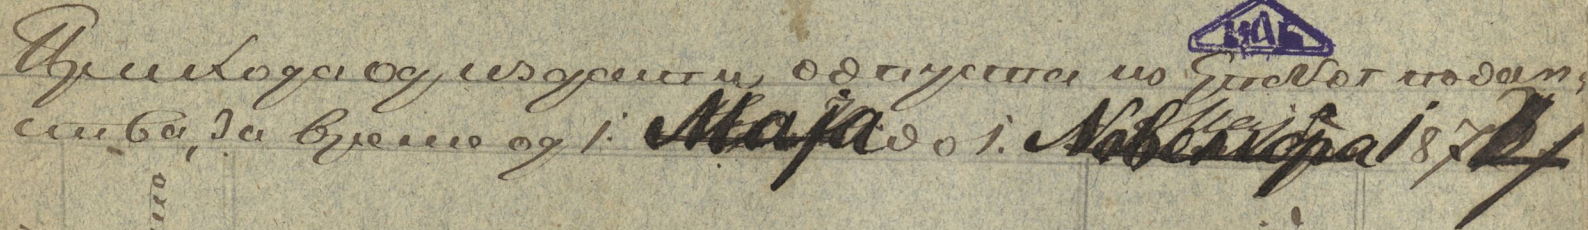 Прихода од издати одпуста из Српског подан-
ства, за време од 1. Маја до 1. Новембра 187